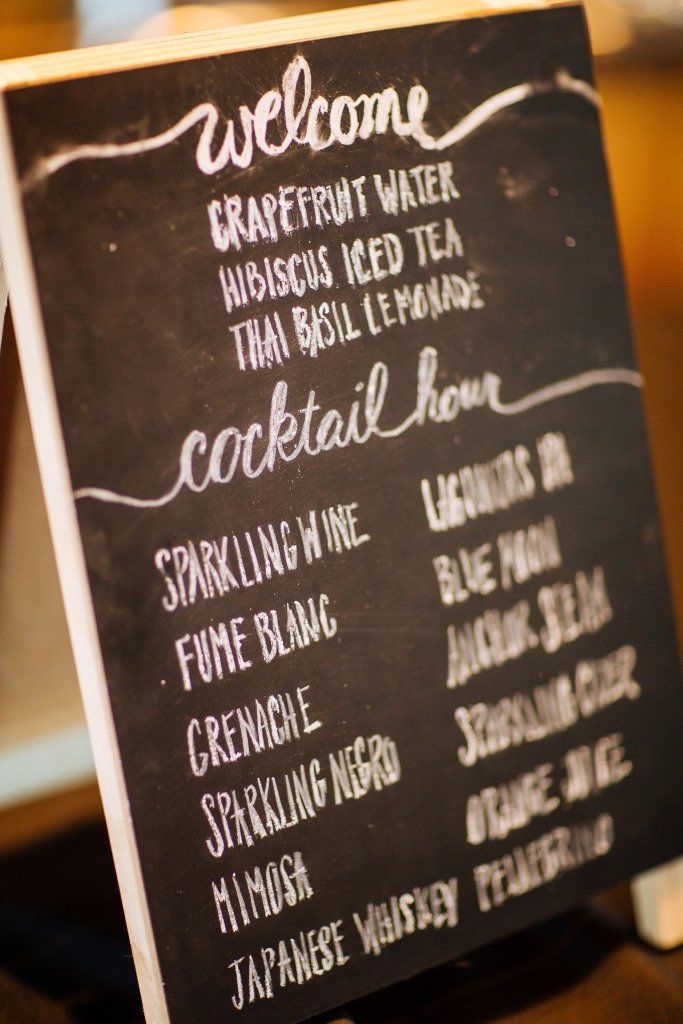 welcome
GRAPEFRUIT WATER
HIBISCUS ICED TEA
THAI BASIL LEMONADE
cocktail hour
SPARKLING WINE
FUME BLANC
GRENACHE
SPARKLING NEGRO
MIMOSA
JAPANESE WHISKEY
LAGUNITAS IPA
BLUE MOON
ANCHOR STEAM
SPARKLING CIDER
ORANGE JUICE
PELLEGRINO